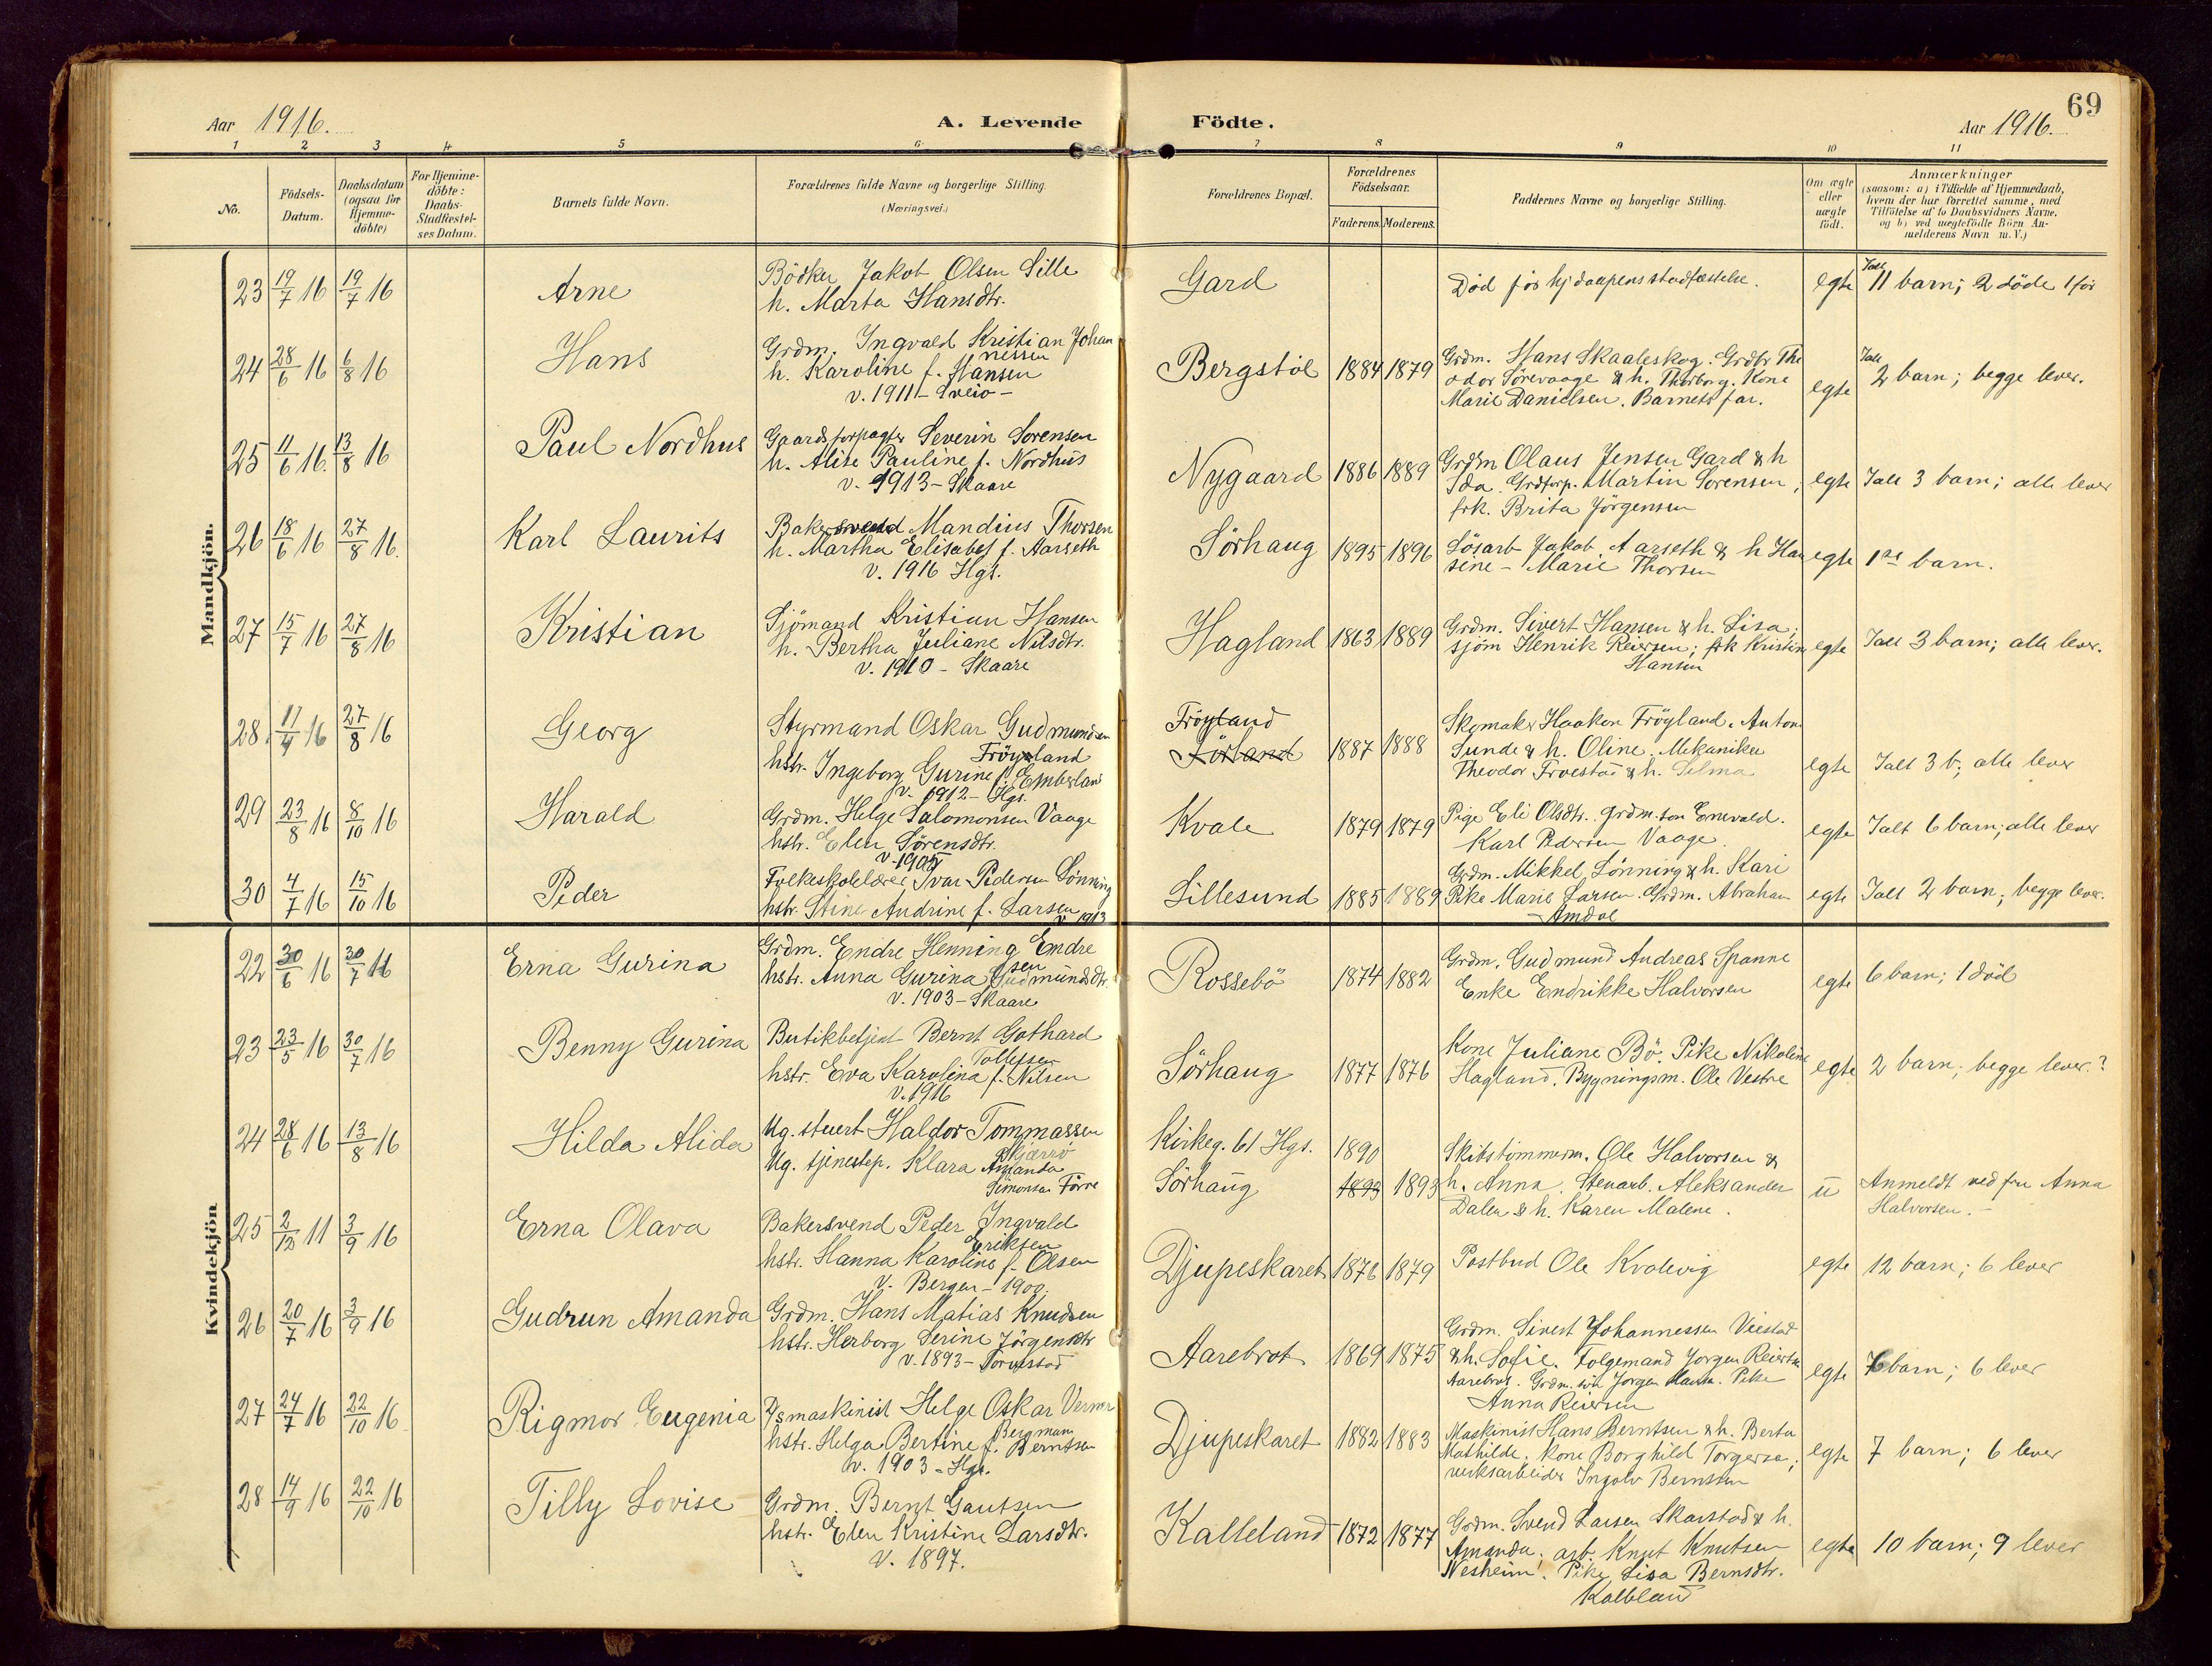 69
Aar 1916. A. Levende Födte. Aar 1916.
1 2 3 4 5 6 7 8 9 10 11
No.
Födsels-
Datum.
Daabsdatum
(ogsaa for
Hjemme-
döbte)
For Hjemme-
döbte:
Daabs-
Stadfestel-
ses Datum.
Barnets fulde Navn.
Forældrenes fulde Navne og borgerlige Stilling.
(Næringsvei.)
Forældrenes Bopæl.
Forældrenes
Födselsaar.
Faderens. Moderens.
Faddernes Navne og borgerlige Stilling.
Om ægte
eller
uægte
födt.
Anmærkninger
(saasom: a) i Tilfælde af Hjemmedaab,
hvem der har forrettet samme, med
Tilföielse af to Daabsvidners Navne,
og b) ved uægtefödte Börn An-
melderens Navn m. V.)
Mandkjön.
23 19/7 16 19/7 16 Arne
Bödker Jakob Olsen Lille
h. Marta Hansdtr.
Gard
Död för hjdaapens stadfæstelse.
egte
Ialt 11 barn; 2 döde 1 för
24 28/6 16 6/8 16 Hans
Grdm. Ingvald Kristian Johan
nessen
h. Karoline f. Hansen
v. 1911 - Sveio -
Bergstöl 1884 1879
Grdm. Hans Skaaleskog. Grdbr The
odor Sörevaage & h. Thorborg. Kone
Marie Danielsen. Barnets far.
egte
Ialt 2 barn; begge lever.
25 11/6 16. 13/8 16 Paul Nordhus
Gaardsforpagter Severin Sorensen
h. Alise Pauline f. Nordhus
v. 1913 - Skaare
Nygaard 1886 1889
Grdm Olaus Jensen Gard & h
Ida. Grdforp. Martin Sorensen;
frk. Brita Jörgensen
egte
Ialt 3 barn; alle lever
26 18/6 16 27/8 16. Karl Laurits
Bakersvend Mandius Thorsen
h. Martha Elisabet f. Aarseth
v. 1916 Hgs.
Sörhaug 1895 1896
Lösarb Jakob Aarseth & h Han
sine - Marie Thorsen
egte
1ste barn.
27 15/7 16 27/8 16 Kristian
Sjömand Kristian Hansen
h. Bertha Juliane Nilsdtr.
v. 1910 - Skaare
Hagland 1863 1889
Grdm. Sivert Hansen & h. Lisa;
sjöm Henrik Reiersen; frk Kristine
Hansen
egte
Ialt 3 barn; alle lever.
28. 11/4 16 27/8 16 Georg
Styrmand Oskar Gudmundsen
Fröyland
hstr. Ingeborg Gurine f. Emberland
v. 1912 - Hgs.
Fröyland
Förland
1887 1888
Skomaker Haakon Fröyland. Anton
Sunde & h. Oline. Mekaniker
Theodor Froestad & h. Selma
egte
Ialt 3 b; alle lever
29 23/8 16 8/10 16 Harald
Grdm. Helge Salomonsen Vaage
hstr. Elen Sörensdtr.
Kvale 1879 1879
Pige Eli Olsdtr. grdm. sön Enevald.
Karl Pedersen Vaage.
egte
Ialt 6 barn; alle lever
30 4/7 16 15/10 16 Peder
Folkeskolelærer Ivar Pedersen Lönning
hstr. Stine Andrine f. Larsen
v 1913
Lillesund 1885 1889
Grdm. Mikkel Lönning & h. Kari
Pike Marie Larsen. Grdm. Abraham
Amdal
egte
Ialt 2 barn; begge lever.
Kvindekjön
22 30/6 16 30/7 16 Erna Gurina
Grdm. Endre Henning Endre
sen
hstr. Anna Gurina Gudmundsdtr.
v. 1903 - Skaare
Rossebö 1874 1882
Grdm. Gudmund Andreas Spanne
Enke Endrikke Halvorsen
egte
6 barn; 1 död
23 23/5 16 30/7 16 Benny Gurina
Butikbetjent Bernt Gothard
Tollefsen
hstr. Eva Karolina f. Nilsen
v. 1916
Sörhaug 1877 1876
Kone Juliane Bö. Pike Nikoline
Hagland. Bygningsm. Ole Vestre
egte
2 barn; begge lever.?
24 28/6 16 13/8 16 Hilda Alida
Ug. stuert Haldor Tommassen
Ug. tjenestep. Klara Amanda
Simonsen Förre
Kirkeg. 61 Hgs. 1890
Sörhaug 1893 1893
Skibstömmerm. Ole Halvorsen &
h. Anna. Stenarb. Aleksander
Dalen & h. Karen Malene.
u
Anmeldt ved fru Anna
Halvorsen.
25 2/10 11 3/9 16 Erna Olava
Bakersvend Peder Ingvald
Eriksen
hstr. Hanna Karoline f. Olsen
v. Bergen - 1900.
Djupeskaret 1876 1879
Postbud Ole Kvalevig
egte
12 barn; 6 lever
26 20/7 16 3/9 16 Gudrun Amanda
Grdm. Hans Matias Knudsen
hstr. Herborg Serine Jörgensdtr
v. 1893 - Torvestad
Aarebrot 1869 1875
Grdm. Sivert Johannessen Veestad
& h. Sofie. Folgemand Jorgen Reiersen
Aarebrot. Grdm. sön Jorgen Hansen. Pike
Anna Reiersen
egte
7 barn; 6 lever
27 24/7 16 22/10 16 Rigmor Eugenia
D/s maskinist Helge Oskar Verner
Bergman
hstr. Helga Bertine f. Berntsen
v. 1903 - Hgs.
Djupeskaret 1882 1883
Maskinist Hans Berntsen & h. Berta
Mathilde. kone Borghild Torgersen;
verksarbeider Ingolv Berntsen
egte
7 barn; 6 lever
28 14/9 16 22/10 16 Tilly Lovise
Grdm. Bernt Gautsen
hstr. Elen Kristine Larsdtr.
v. 1897.
Kalleland 1872 1877
Grdm. Svend Larsen Skarstad & h.
Amanda; arb. Knut Knutsen
Nesheim. Pike Lisa Bernsdtr.
Kalleland
egte
10 barn; 9 lever